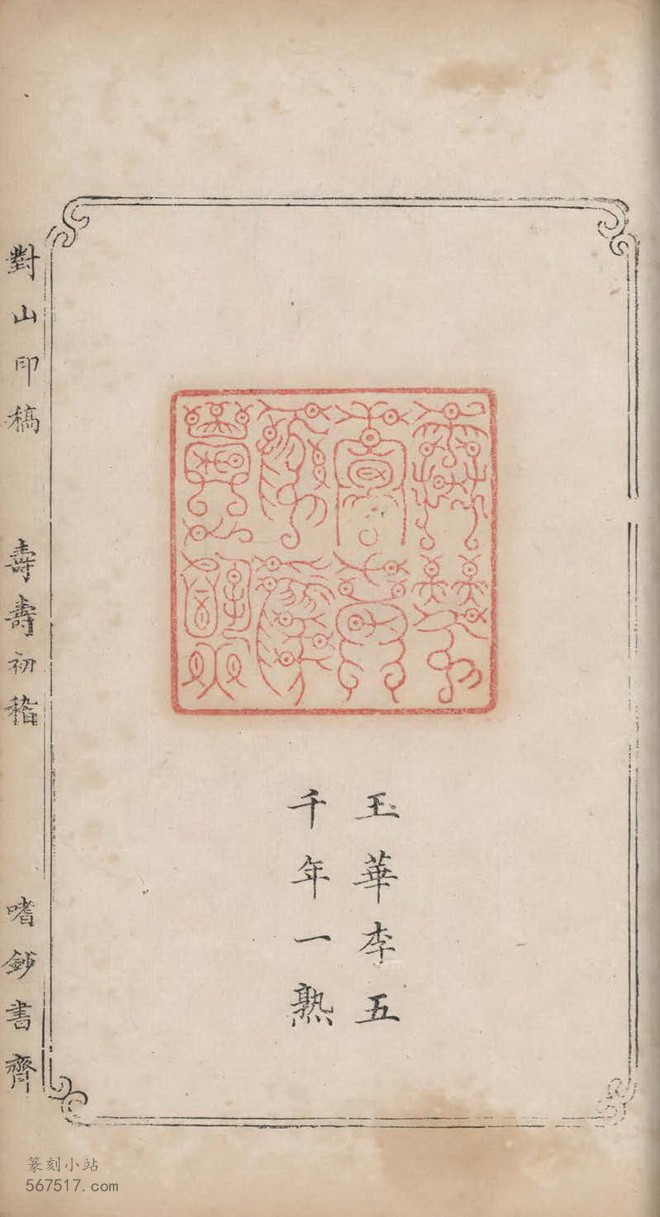 玉華李五
千年一熟
對山印稿
壽壽初稽
嗜鈔書齋
篆刻小站
567517.com